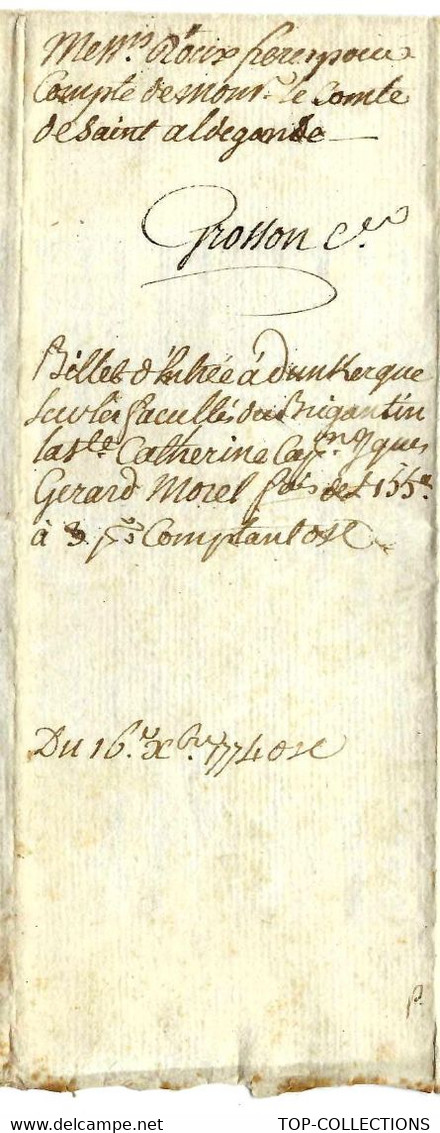 Mess.rs Roux freres pour
Compte de Mons.r le Comte
de Saint aldegonde
Grosson C.er
Billet d'Entrée à Dunkerque
sur les facultés du Brigantin
la S.te Catherine Cap.ne Jques
Gerard Morel fais de £ 155
à 3 p% Comptant
Du 16.e Xbre 1774
TOP-COLLECTIONS